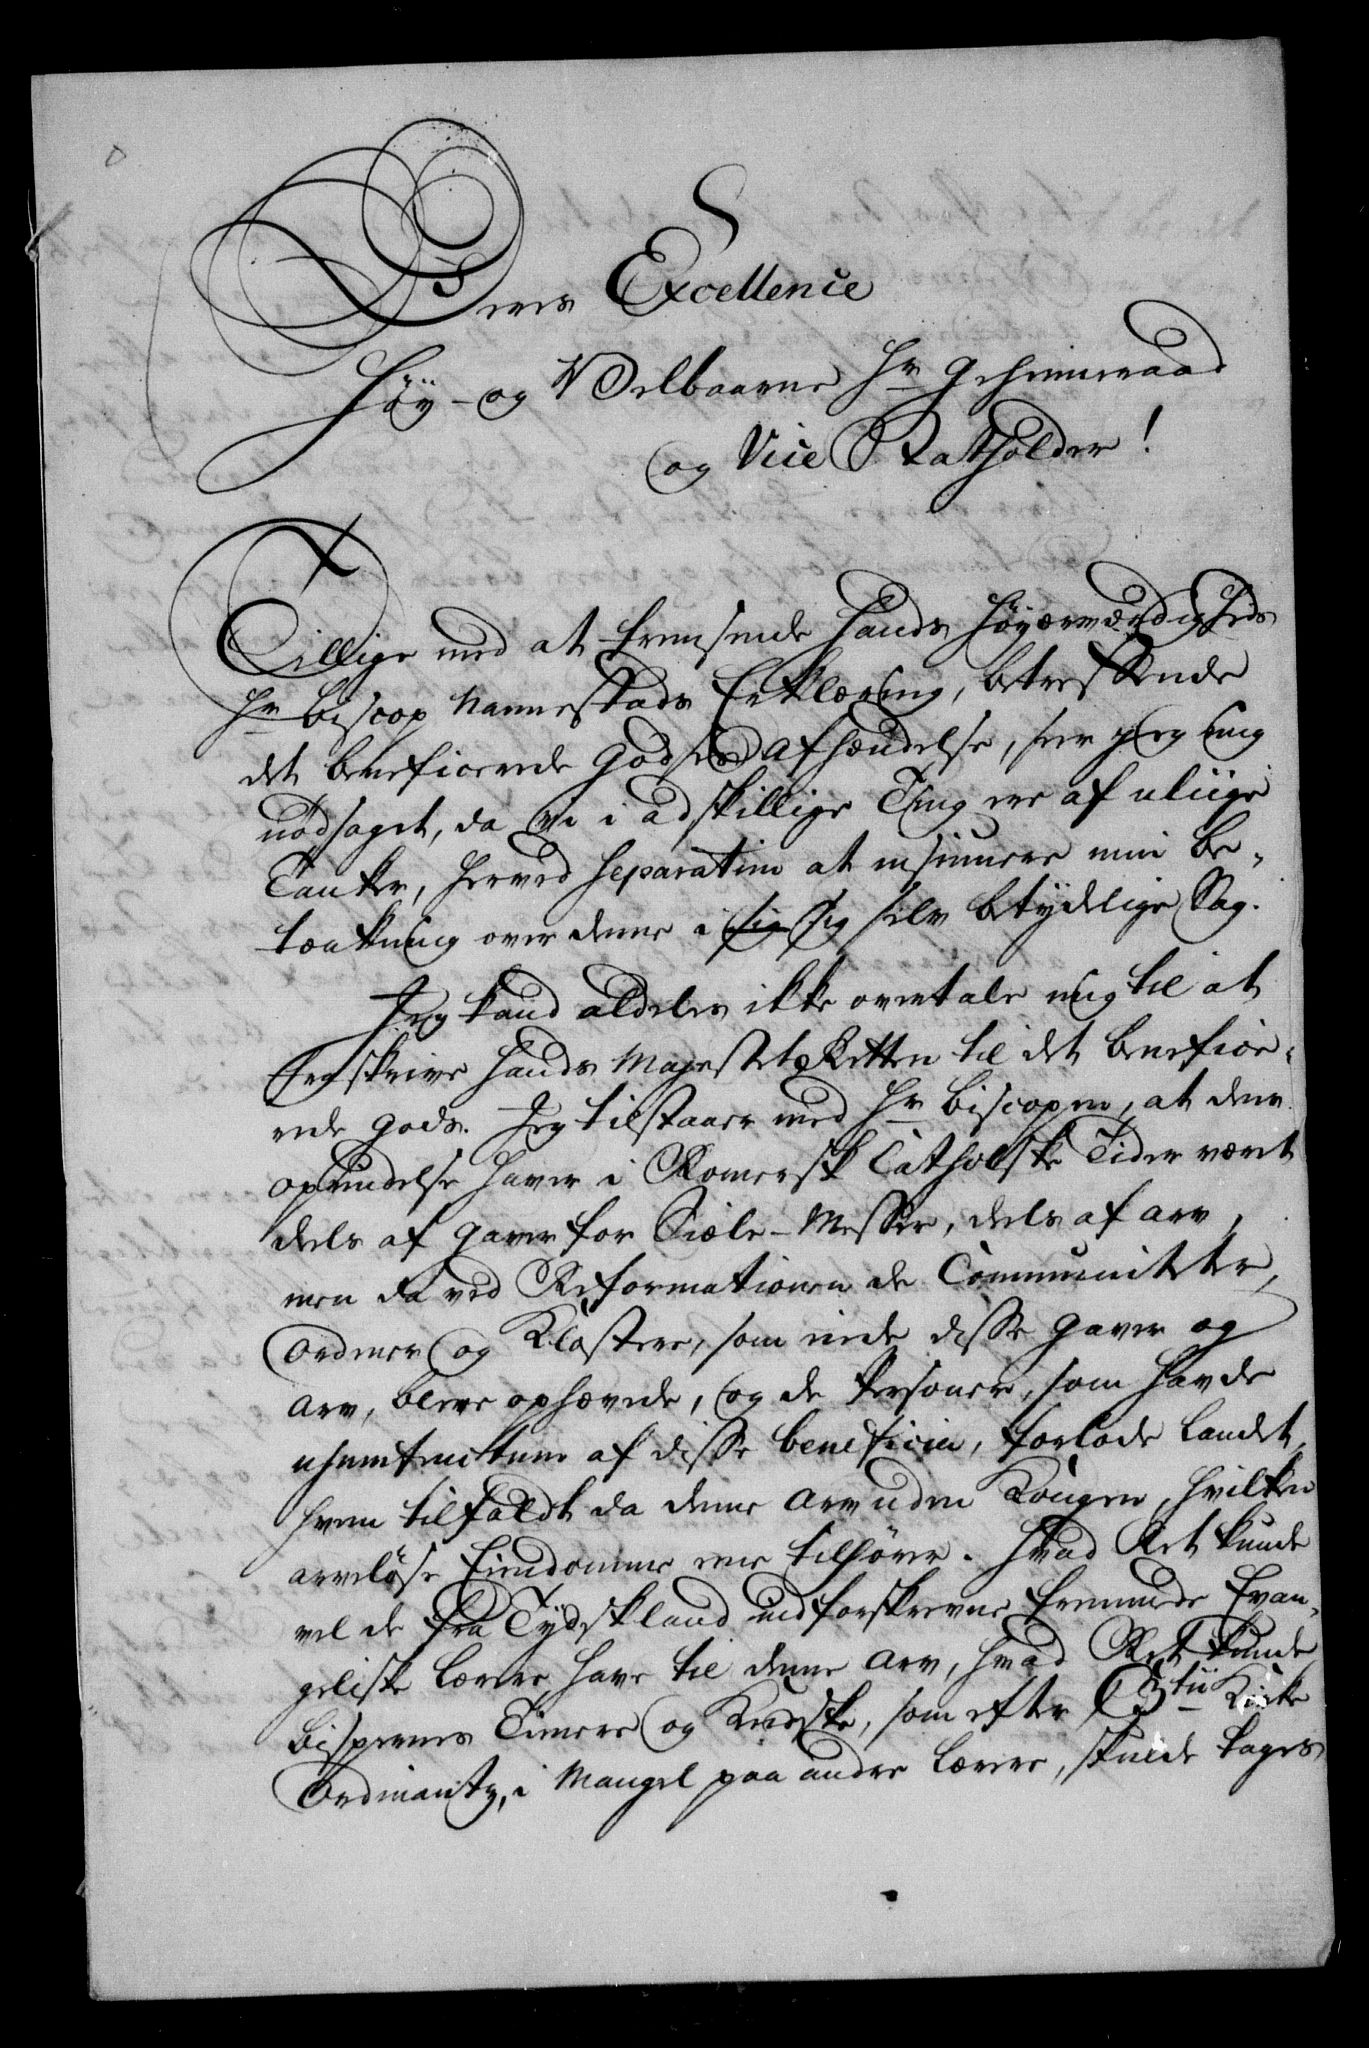 Deres Excellence
Höy- og Velbaarne Hr Geheimeraad
og Vice Statholder!
Tillige med at fremsende Hands Höyærværdigheds
Hr Biscop Nannestads Erklæring, betreffende
det beneficerede Godses Afhændelse, seer jeg mig
nödsaget, da vi i adskillige Ting ere af uliige
Tanker, herved separatim at insinuere min Be-
tænkning over denne i sig Sig selv betydelige Sag.
Jeg kand aldeles ikke overtale mig til at
fraskrive Hands Majestet Retten til det benefice-
rede Gods. Jeg tilstaaer med Hr Biscopen, at dens
oprindelse haver i Romersk Catholske Tider været
deels af Gaver for Siæle-Messer, deels af Arv,
men da ved Reformationen de Communiteter,
Ordener og Klostere, som nöde disse Gaver og
Arv, bleve ophævede, og de Personer, som havde
usumfructum af disse beneficier, forlode Landet,
hvem tilfaldt da denne Arv uden Kongen, hvilken
arvelöse Eiendomme ene tilhörer. Hvad Ret kunde
vel de fra Tydskland indforskrevne fremmede Evan-
geliske Lærere have til denne Arv, hvad Ret kunde
Bispernes Tienere og Kudske, som efter C 3tii Kirke
Ordinantz, i Mangel paa andre Lærere, skulde tages